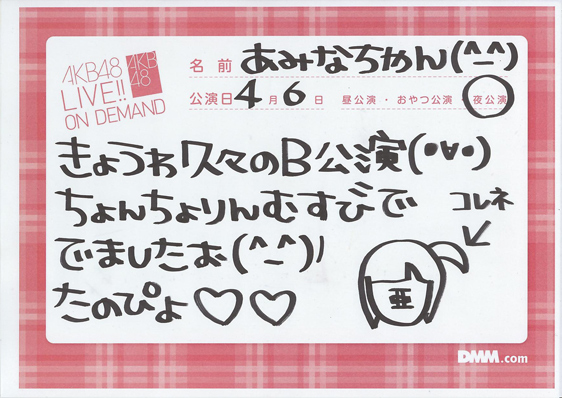 AKB48
LIVE!!
ON DEMAND
AKB
48
名前 あみなちゃん(^-^)
公演日 4月6日 昼公演・おやつ公演・夜公演
きょうわ久々のB公演(•∀•)
ちょんちょりんむすびで
でましたお(^-^)/
たのぴよ♡♡
コレネ
亜
DMM.com